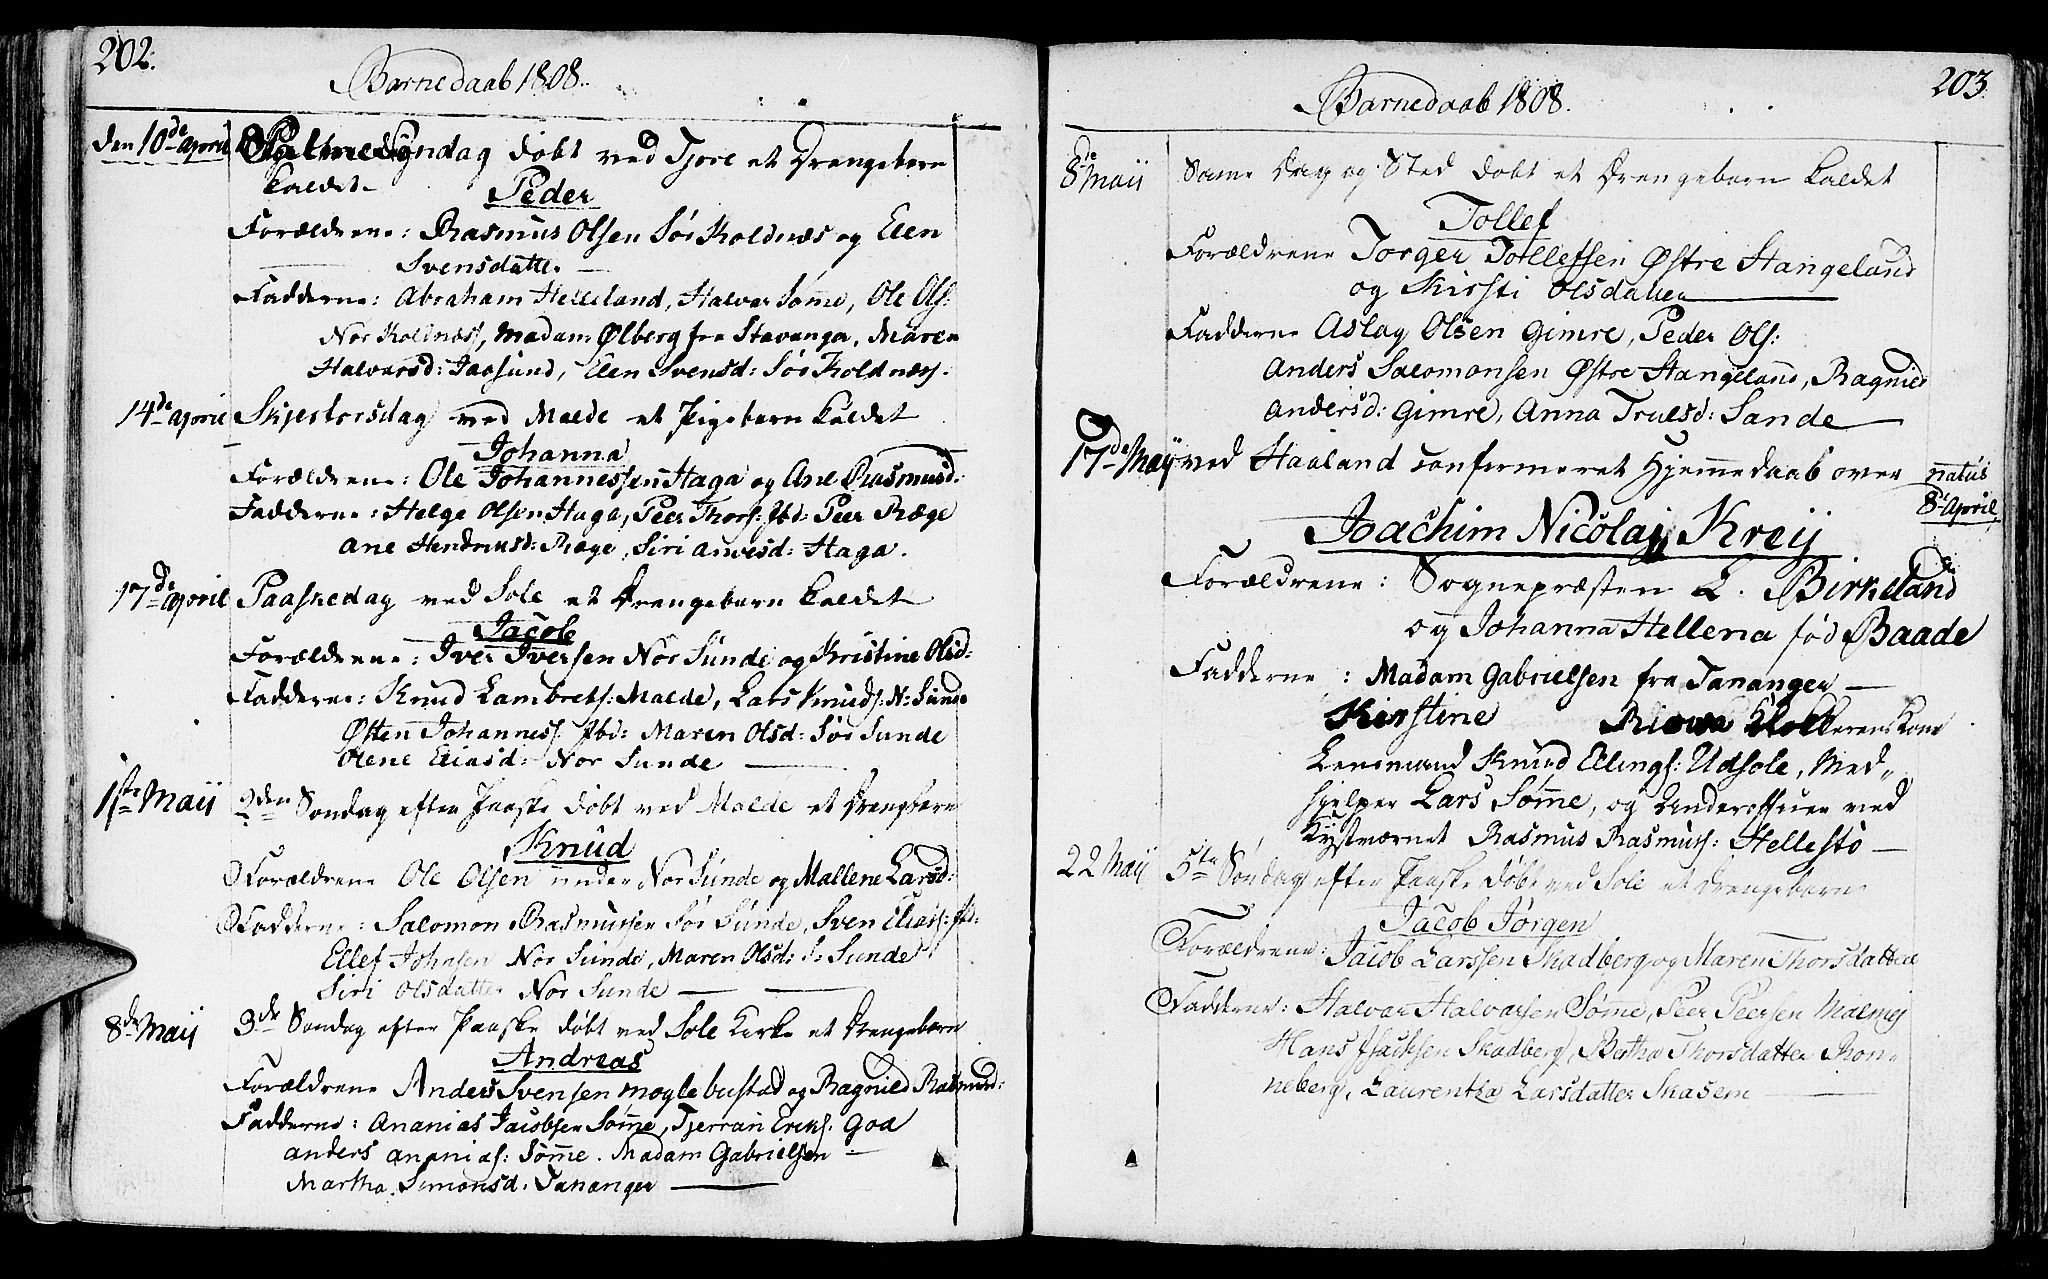 202.
Barnedaab 1808.
den 10de April Palmesøndag døbt ved Tjore et Drengebarn
kaldet
Peder
Forældrene: Rasmus Olsen Sør Koldnæs og Elen
Svensdatter
Fadderne: Abraham Helleland, Halvor Sømme, Ole Ols:
Nor Kolnæs, Madam Ølberg fra Stavanger, Maren
Halvorsd: Jaasund, Elen Svensd: Sør Koldnæs.
14de April Skjertorsdag ved Malde et Pigebarn kaldet
Johanna
Forældrene: Ole Johannessen Haga og Ane Rasmusd:
Fadderne: Helge Olsen Haga, Peer Thors: Ibd: Peer Ræge
Ane Hendricsd: Ræge, Siri Anvesd: Haga.
17de April Paaskedag ved Sole et Drengebarn kaldet
Jacob
Forældrene: Iver Iversen Nor Sunde og Kristine Olsd:
Fadderne: Knud Lambrets: Malde, Lars Knuds: N: Sunde
Østen Johanness: Ibd: Maren Olsd: Sør Sunde
Olene Eliasd: Nor Sunde
1ste Maij 2den Søndag efter Paaske døbt ved Malde et Drengebarn
Knud
Forældrene Ole Olsen under Nor Sunde og Mallene Larsd:
Fadderne: Salomon Rasmussen Sør Sunde, Sven Elias: Ibd:
Ellef Johnsen Nor Sunde, Maren Olsd: S: Sunde
Siri Olsdatter Nor Sunde
8de Maij 3de Søndag efter Paaske døbt ved Sole Kirke et Drengebarn
Andreas
Forældrene Anders Svensen Moglebustad og Ragnild Rasmusd:
Fadderne: Ananias Jacobsen Sømme, Tjerran Eriks: Goa
Anders Ananias: Sømme. Madam Gabrielsen
Martha Simonsd: Tananger
203.
Barnedaab 1808.
8de Maij Same Dag og Sted døbt et Drengebarn kaldet
Tollef
Forældrene Torger Tollefsen Østre Stangeland
og Kirsti Olsdatter
Fadderne Aslag Olsen Gimre, Peder Ols:
Anders Salomonsen Østre Stangeland, Ragnild
Andersd: Gimre, Anna Truelsd: Sande
17de Maij ved Haaland confirmeret Hjemmedaab over natus
8de April
Joachim Nicolaj Kreij
Forældrene: Sognepræsten L. Birkeland
og Johanna Hellena fød Baade
Fadderne: Madam Gabrielsen fra Tananger
Kirstine Klokkerens Kone
Lensmand Knud Ellings: Udsole, Med-
hjelper Lars Sømme, og Underofficer ved
Kystværnet Rasmus Rasmus: Hellestø
22 Maij 5te Søndag efter Paaske døbt ved Sole et Drengebarn
Jacob Jørgen
Forældrene: Jacob Larssen Skadberg og Maren Thorsdatter
Fadderne: Halvor Halvorsen Sømme, Peer Peersen Malmej
Hans Isachsen Skadberg, Bertha Thorsdatter Ron-
neberg, Laurentha Larsdatter Skasem